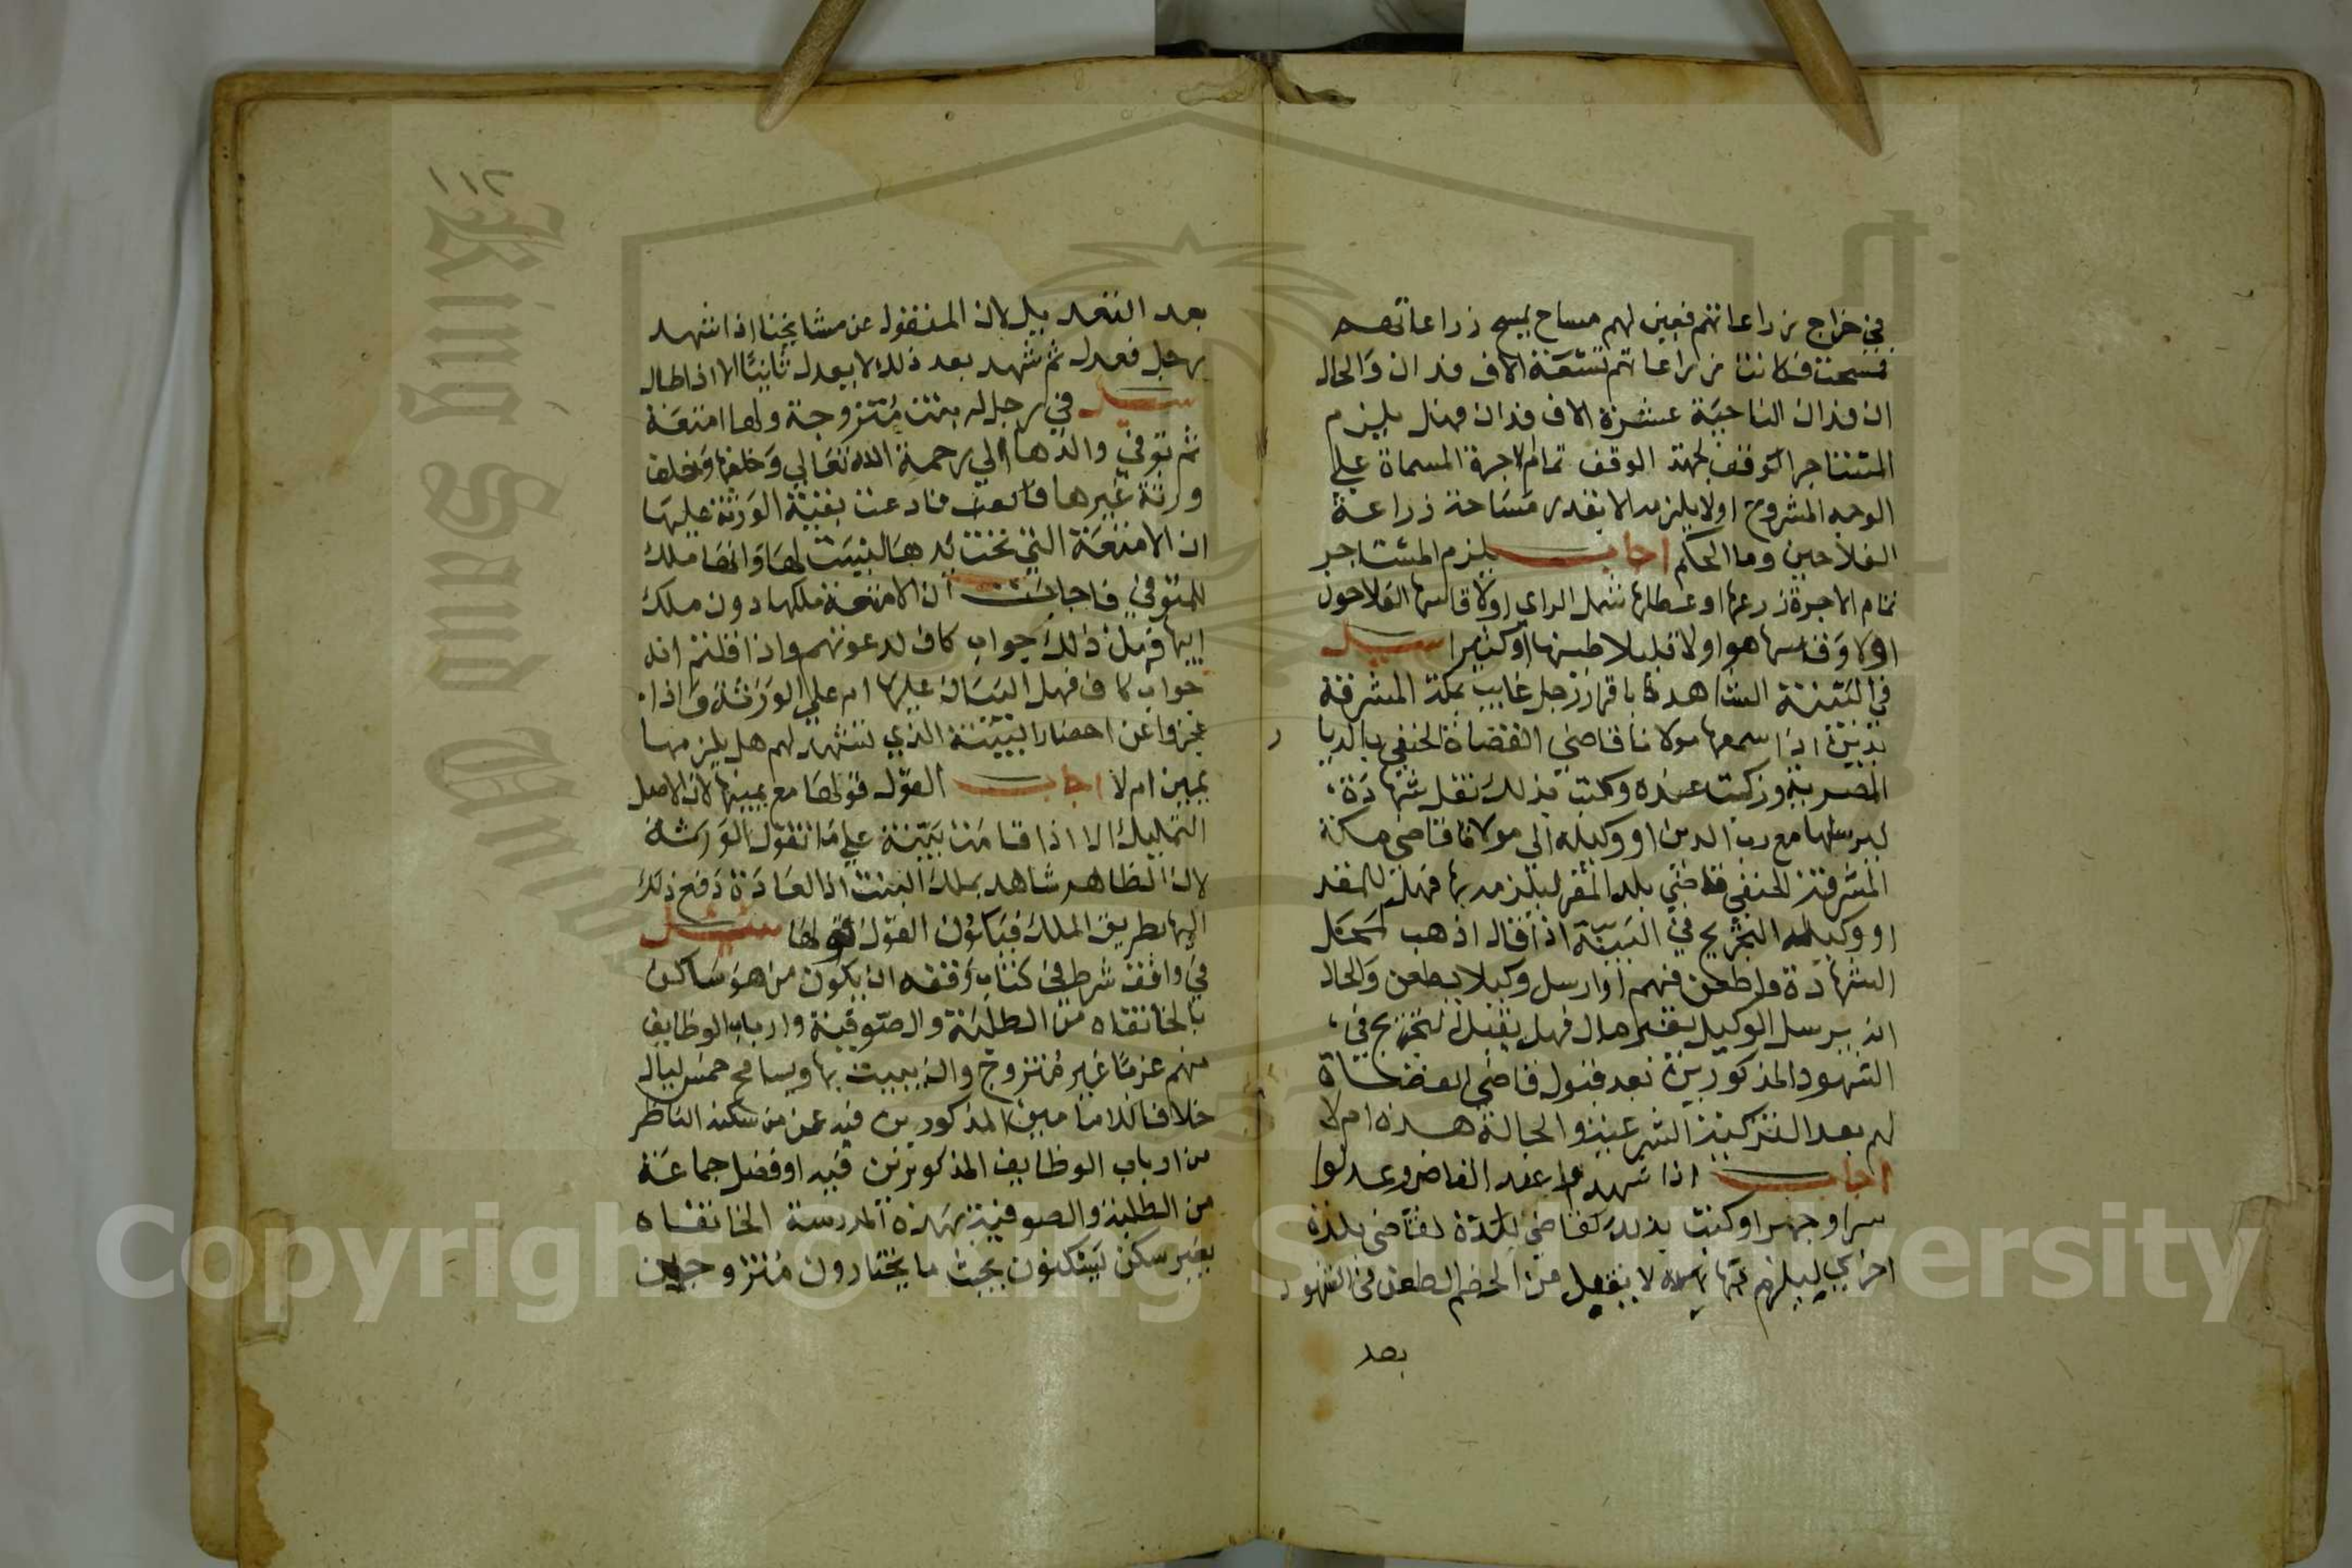 في خراج زراعاتهم فعين لهم مساح يمسح زراعاتهم
فمسحت فكانت زراعاتهم تسعة الاف فدان والحال
ان فدان الناحية عشرة الاف فدان فهل يلزم
المستاجر الوقف لجهة الوقف تمام الاجرة المسماة علي
الوجه المشروح اولا يلزمه الا بقدر مساحة زراعة
الفلاحين وما الحكم اجاب يلزم المستاجر
تمام الاجرة زرعها او عطلها شمل الراي اولا قاسها الفلاحون
اولا وقاسها هو اولا قليلا طينها او كثيرا سيل
في البينة الشاهدة باقرار رجل غايب بمكة المشرفة
بدين اذا سمعها مولانا قاضي القضاة الحنفي بالديار
المصرية وزكيت عنده وكتب بذلك نقل شهادة
ليرسلها مع رب الدين او وكيله الي مولانا قاضي مكة
المشرفة الحنفي قاضي بلد المقر ليلزمه بها فهل للمقر
او وكيله التجريح في البينة اذا قال اذهب لمحل
الشهادة واطعن فيهم او ارسل وكيلا يطعن والحال
ان يرسل الوكيل بقسم مال فهل يقبل التجريح في
الشهود المذكورين بعد قبول قاضي القضاة
لهم بعد التزكية الشرعية والحالة هذه ام لا
اجاب اذا شهدوا عند القاضي وعدلوا
سرا وجهرا وكتب بذلك لقاضي بلدة لقاضي بلدة
اخري ليلزم بها لا يقبل من الخصم الطعن في الشهود
بعد
١١٢
بعد التعديل لان المنقول عن مشايخنا اذا شهد
رجل فعدل ثم شهد بعد ذلك لا يعدل ثانيا الا اذا طال
سيل في رجل له بنت متزوجة ولها امتعة
ثم توفي والدها الي رحمة الله تعالي وخلفها وخلف
ورثة غيرها فادعت بقية الورثة عليها
ان الامتعة التي تحت يدها ليست لها وانها ملك
للمتوفي فاجابت ان الامتعة ملكها دون ملك
ابيها فهل ذلك جواب كاف لدعوتهم واذا قلتم انه
جواب كاف فهل البينة عليها ام علي الورثة واذا
عجزوا عن احضار البينة الذي تشهد لهم هل يلزمها
يمين ام لا اجاب القول قولها مع يمينها لان الاصل
التمليك الا اذا قامت بينة علي ما تقول الورثة
لان الظاهر شاهد بملك البنت اذ العادة دفع ذلك
اليها بطريق الملك فيكون القول قولها سيل
في واقف شرط في كتاب وقفه ان يكون من هو ساكن
بالخانقاه من الطلبة والصوفية وارباب الوظايف
منهم عزبا غير متزوج وان يبيت بها ويسامح خمس ليال
خلافا لذا ما بين المذكورين فيه عن من سكنه الناظر
من ارباب الوظايف المذكورين فيه او فضل جماعة
من الطلبة والصوفية بهذه المدرسة الخانقاه
بغير سكن ليسكنون بحيث ما يختارون متزوجين
King Saud University
Copyright © King Saud University